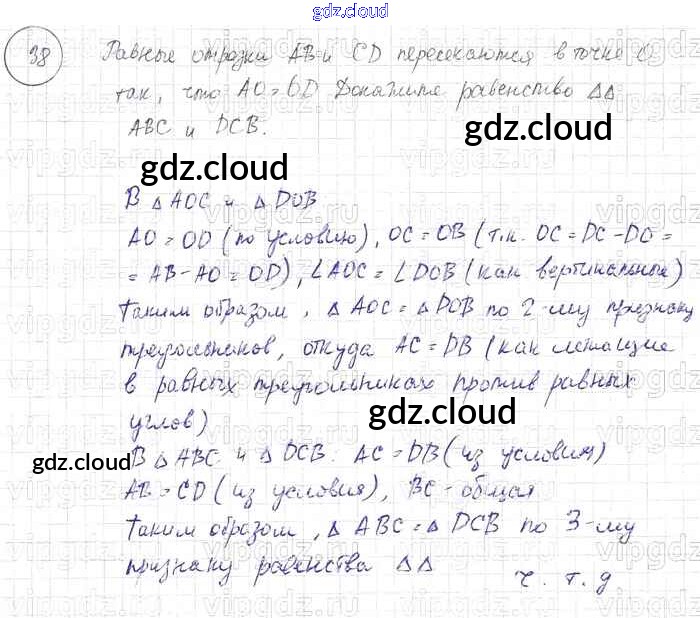 gdz.cloud
38 Равные отрезки AB и CD пересекаются в точке O
так, что AO = OD Докажите равенство ΔΔ
ABC и DCB.
gdz.cloud
gdz.cloud
В Δ AOC и Δ DOB
AO = OD (по условию), OC = OB (т.к. OC = DC - DO =
= AB - AO = OD), ∠AOC = ∠DOB (как вертикальные)
Таким образом, Δ AOC = Δ DOB по 2-му признаку
треугольников, откуда AC = DB (как лежащие
в равных треугольниках против равных
углов)
gdz.cloud
gdz.cloud
В Δ ABC и Δ DCB: AC = DB (из условия)
AB = CD (из условия), BC - общая
Таким образом, Δ ABC = Δ DCB по 3-му
признаку равенства ΔΔ
ч. т. д